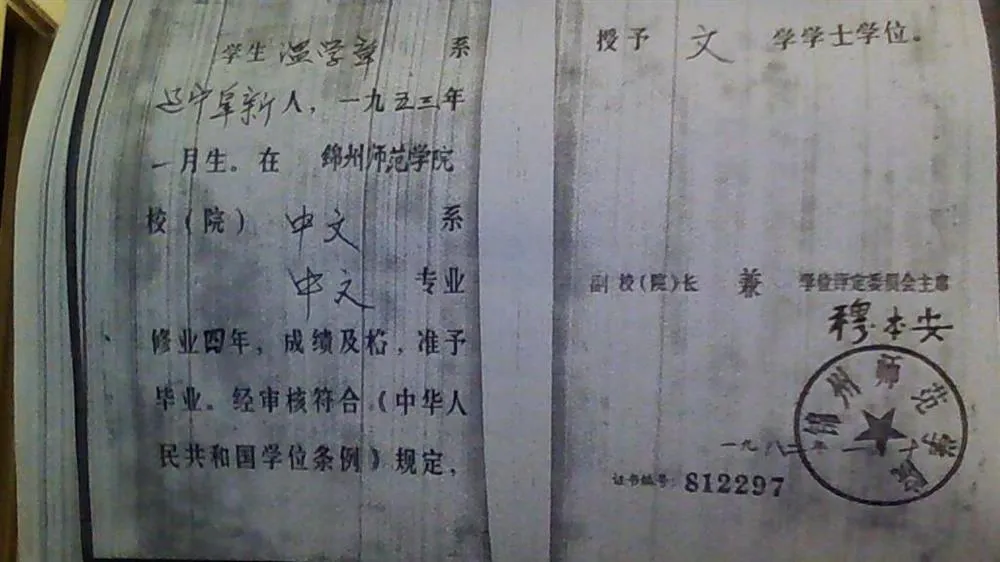 学生 温学章 系
辽宁阜新人，一九五三年
一月生。在 锦州师范学院
校（院） 中文 系
中文 专业
修业四年，成绩及格，准予
毕业。经审核符合《中华人
民共和国学位条例》规定，
授予 文 学学士学位。
副校（院）长 兼 学位评定委员会主席
穆本安
锦州师范学院
一九八二年
证书编号：812297